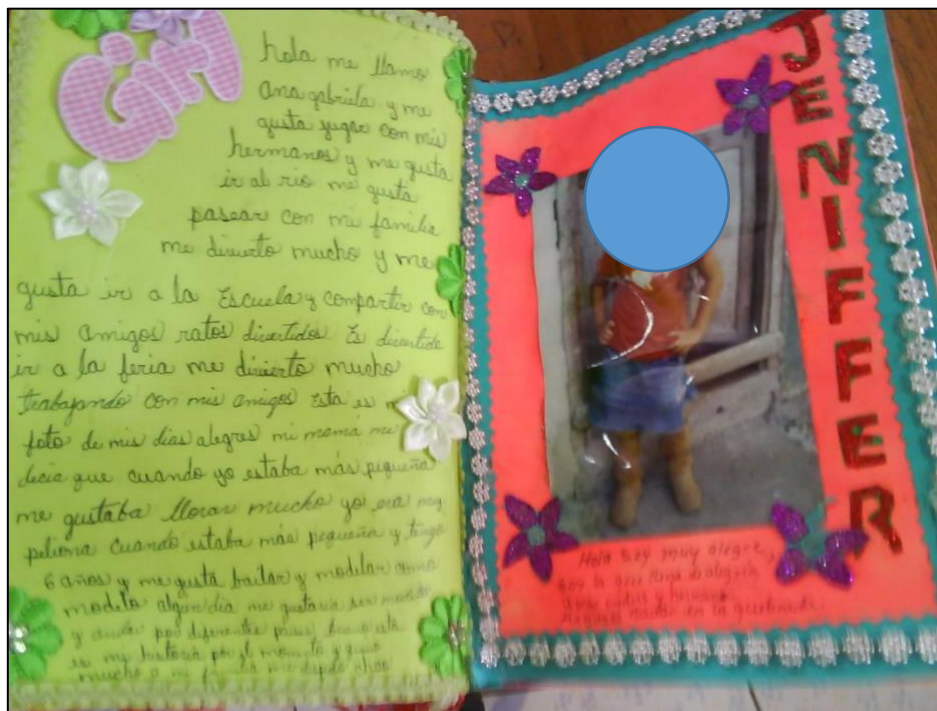 Girl
hola me llamo
Ana gabriela y me
gusta jugar con mis
hermanos y me gusta
ir al rio me gusta
pasear con mi familia
me divierto mucho y me
gusta ir a la Escuela y compartir con
mis amigos ratos divertidos. Es divertido
ir a la feria me divierto mucho
trabajando con mis amigos Esta es
foto de mis dias alegres mi mama me
decia que cuando yo estaba más pequeña
me gustaba llorar mucho yo era muy
peliona cuando estaba más pequeña y tengo
6 años y me gusta bailar y modelar como
modelo algun dia me gustaria ser modelo
y andar por diferentes paises bueno esta
es mi historia por el momento y quiero
mucho a mi familia me despido chao
JENIFFER
Hola Soy muy alegre,
Soy la que llena de alegría
a mis padres y hermano.
nadar en la quebrada.